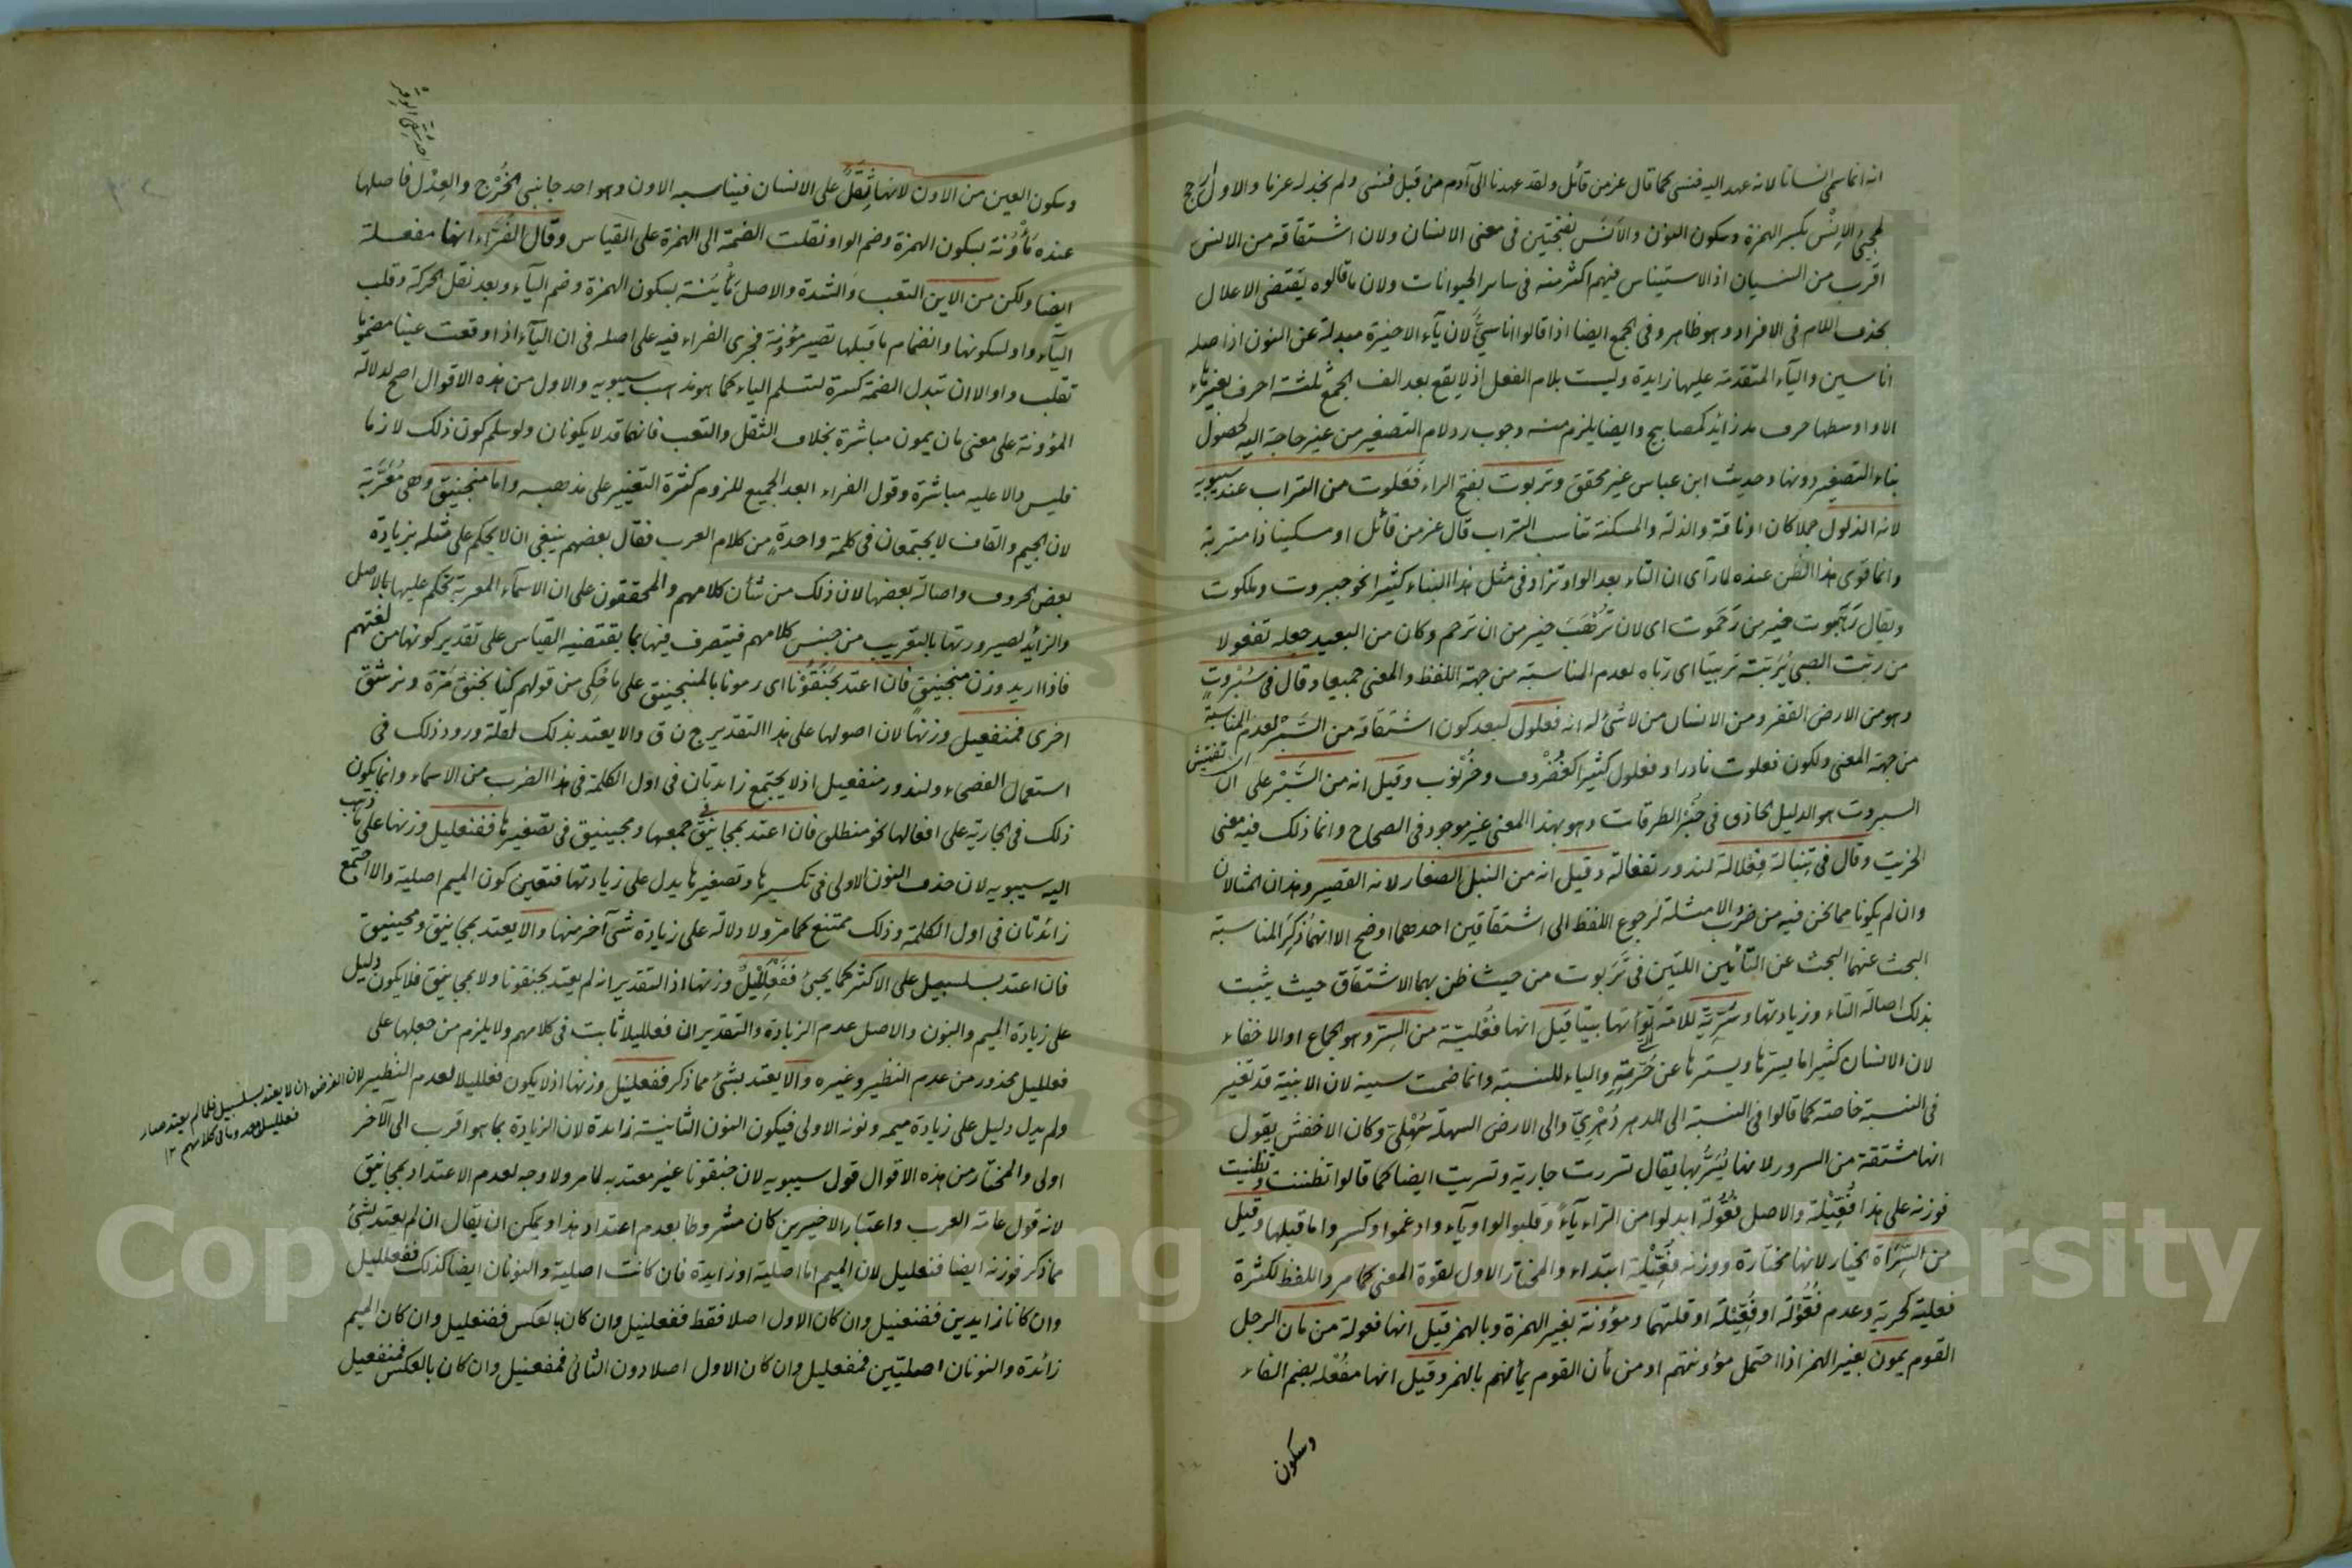 انه انما سمى انسانا لانه عهد اليه فنسى كما قال عز من قائل ولقد عهدنا الى آدم من قبل فنسى ولم نجد له عزما والاول ارجح
لمجيئ الاِنْس بكسر الهمزة وسكون النون والاَنَس بفتحتين فى معنى الانسان ولان اشتقاقه من الانس
اقرب من النسيان اذ الاستيناس فيهم اكثر منه فى ساير الحيوانات ولان ما قالوه يقتضى الاعلال
بحذف اللام فى الافراد وهو ظاهر وفى الجمع ايضا اذا قالوا اناسىّ لان يآء الاخيرة مبدلة عن النون اذ اصله
اناسين واليآء المتقدمة عليها زايدة وليست بلام الفعل اذ لا يقع بعد الف الجمع ثلثة احرف بغير هاء
الا واوسطها حرف مد زايد كمصابيح وايضا يلزم منه وجوب رد لام التصغير من غير حاجة اليه لحصول
بناء التصغير دونها وحديث ابن عباس غير محقق وتربوت بفتح الراء فَعَلوت من التراب عند سيبويه
لانه الذلول جملا كان او ناقة والذلة والمسكنة تناسب التراب قال عز من قائل او مسكينا ذا متربة
وانما قوى هذا الظن عنده لما رآى ان التاء بعد الواو تزاد فى مثل هذا البناء كثيرا نحو جبروت وملكوت
ويقال رَهَبُوت خير من رَحَمُوت اى لان تُرْهَبَ خير من ان ترحم وكان من البعيد جعله تفعولا
من ربّت الصبى يُربّته تربيتا اى ربّاه لعدم المناسبة من جهة اللفظ والمعنى جميعا وقال فى سُبْروتٍ
وهو من الارض القفر ومن الانسان من لا شئ له انه فعلول لبعد كون اشتقاقه من السَّبْر لعدم المناسبة
من جهة المعنى ولكون فعلوت نادرا وفعلول كثيرا كغُضْروف وخُرْنوب وقيل انه من السَّبْر على ان
اى تفتيش
السبروت هو الدليل الحاذق فى خُبْر الطرقات وهو بهذا المعنى غير موجود فى الصحاح وانما ذلك فيه معنى
الخريت وقال فى تِنبالة فِعْلالة لندور تفعالة وقيل انه من النبل الصغار لانه القصير وهذان المثالان
وان لم يكونا مما نحن فيه من ضرب والامثلة لرجوع اللفظ الى اشتقاقين احدهما اوضح الا انهما ذُكِرا لمناسبة
البحث عنهما البحث عن التائين اللتين فى تَرَبوت من حيث ظن بهما الاشتقاق حيث يثبت
بذلك اصالة التاء وزيادتها وسُرِّيّة للامة بَوّأتها بيتا قيل انها فُعْليّة من السِّرّ وهو الجماع او الاخفاء
لان الانسان كثيرا ما يسترها ويسترها عن حُرَمته والياء للنسبة وانما ضمت سينه لان الابنية قد تغير
فى النسبة خاصة كما قالوا فى النسبة الى الدهر دُهْرِىّ والى الارض السهلة سُهْلىّ وكان الاخفش يقول
انها مشتقة من السرور لانها يُسَرّ بها يقال تسررت جارية وتسريت ايضا كما قالوا تظننت وتظنيت
فوزنه على هذا فُعِّيْلَة والاصل فُعُّولة ابدلوا من الراء يآءً وقلبوا الواو يآء وادغموا وكسروا ما قبلها وقيل
من السَّرَاة الخيار لانها مختارة ووزنه فُعِّيْلَة ابتداء والمختار الاول لقوة المعنى كما مر واللفظ لكثرة
فعلية كحرية وعدم فُعُّوْلَة او فُعِّيْلَة او قلتهما ومؤونة بغير الهمزة وبالهمز قيل انها فعولة من مان الرجل
القوم يمون بغير الهمز اذا احتمل مؤونتهم او من مأن القوم يمأنهم بالهمز وقيل انها مفْعُلة بضم الفاء
وسكون
وسكون العين من الاون لانها ثِقَلٌ على الانسان فيناسبه الاون وهو احد جانبى الخُرْج والعِدْل فاصلها
عنده مَأْوُنة بسكون الهمزة وضم الواو نقلت الضمة الى الهمزة على القياس وقال الفَرَّاء انها مفعلة
ايضا ولكن من الاين التعب والشدة والاصل مَأْيُنَة بسكون الهمزة وضم اليآء وبعد نقل الحركة وقلب
اليآء واوا لسكونها وانضمام ما قبلها تصير مؤونة فجرى الفراء فيه على اصله فى ان اليآء اذا وقعت عينا مضموما
تقلب واوا لا ان تبدل الضمة كسرة لتسلم الياء كما هو مذهب سيبويه والاول من هذه الاقوال اصح لدلالة
المؤونة على معنى مان يمون مباشرة بخلاف الثقل والتعب فانهما قد لا يكونان ولو سلم كون ذلك لازما
فليس دالا عليه مباشرة وقول الفراء ابعد الجميع للزوم كثرة التغيير على مذهبه واما منجنيق وهى مُعَرَّبة
لان الجيم والقاف لا يجتمعان فى كلمة واحدةٍ من كلام العرب فقال بعضهم ينبغى ان لا يحكم على مثله بزيادة
بعض الحروف واصالة بعضها لان ذلك من شأن كلامهم والمحققون على ان الاسمآء المعربة يحكم عليها بالاصل
والزائد لصيرورتها بالتعريب من جنس كلامهم فيتصرف فيها بما يقتضيه القياس على تقدير كونها من لغتهم
فاذا اريد وزن منجنيق فان اعتد بجَنَقُوْنا اى رمونا بالمنجنيق على ما حُكِى من قولهم كنا نجنق مَرّة ونرشق
اخرى فمنفعيل وزنها لان اصولها على هذا التقدير ج ن ق والا يعتد بذلك لقلة ورود ذلك فى
استعمال الفصحاء ولندور منفعيل اذ لا يجتمع زايدتان فى اول الكلمة فى هذا الضرب من الاسماء وانما يكون
ذلك فى الجارية على افعالها نحو منطلق فان اعتد بمجانيق فى جمعها ومجينيق فى تصغيرها ففنعليل وزنها على ما ذهب
اليه سيبويه لان حذف النون الاولى فى تكسيرها وتصغيرها يدل على زيادتها فتعين كون الميم اصلية والا اجتمع
زائدتان فى اول الكلمة وذلك ممتنع كما مر ولا دلالة على زيادة شئ آخر منها والا يعتد بمجانيق ومجينيق
فان اعتد بسلسبيل على الاكثر كما يجئ فَفَعْلَلِيْلٌ وزنها اذ التقدير انه لم يعتد بجنقونا ولا بمجانيق فلا يكون دليل
على زيادة الميم والنون والاصل عدم الزيادة والتقدير ان فعلليلا ثابت فى كلامهم ولا يلزم من جعلها على
فعلليل محذور من عدم النظير وغيره والا يعتد بشئ مما ذكر ففعلنيل وزنها اذ لا يكون فعلليلا لعدم النظير
لان الغرض ان لا يعتد بسلسبيل فلما لم يعتد صار
فعلليل معدوما فى كلامهم ١٢
ولم يدل دليل على زيادة ميمه ونونه الاولى فيكون النون الثانية زائدة لان الزيادة بما هو اقرب الى الآخر
اولى والمختار من هذه الاقوال قول سيبويه لان جنقونا غير معتد به لما مر ولا وجه لعدم الاعتداد بمجانيق
لانه قول عامة العرب واعتبار الاخيرين كان مشروطا بعدم اعتداد هذا ويمكن ان يقال ان لم يعتد بشئ
مما ذكر فوزنه ايضا فنعليل لان الميم اما اصلية او زايدة فان كانت اصلية والنونان ايضا كذلك ففعلليل
وان كانا زايدين ففنعنيل وان كان الاول اصلا فقط ففعلنيل وان كان بالعكس ففنعليل وان كان الميم
زائدة والنونان اصليتين فمفعليل وان كان الاول اصلا دون الثانى فمفعنيل وان كان بالعكس فمنفعيل